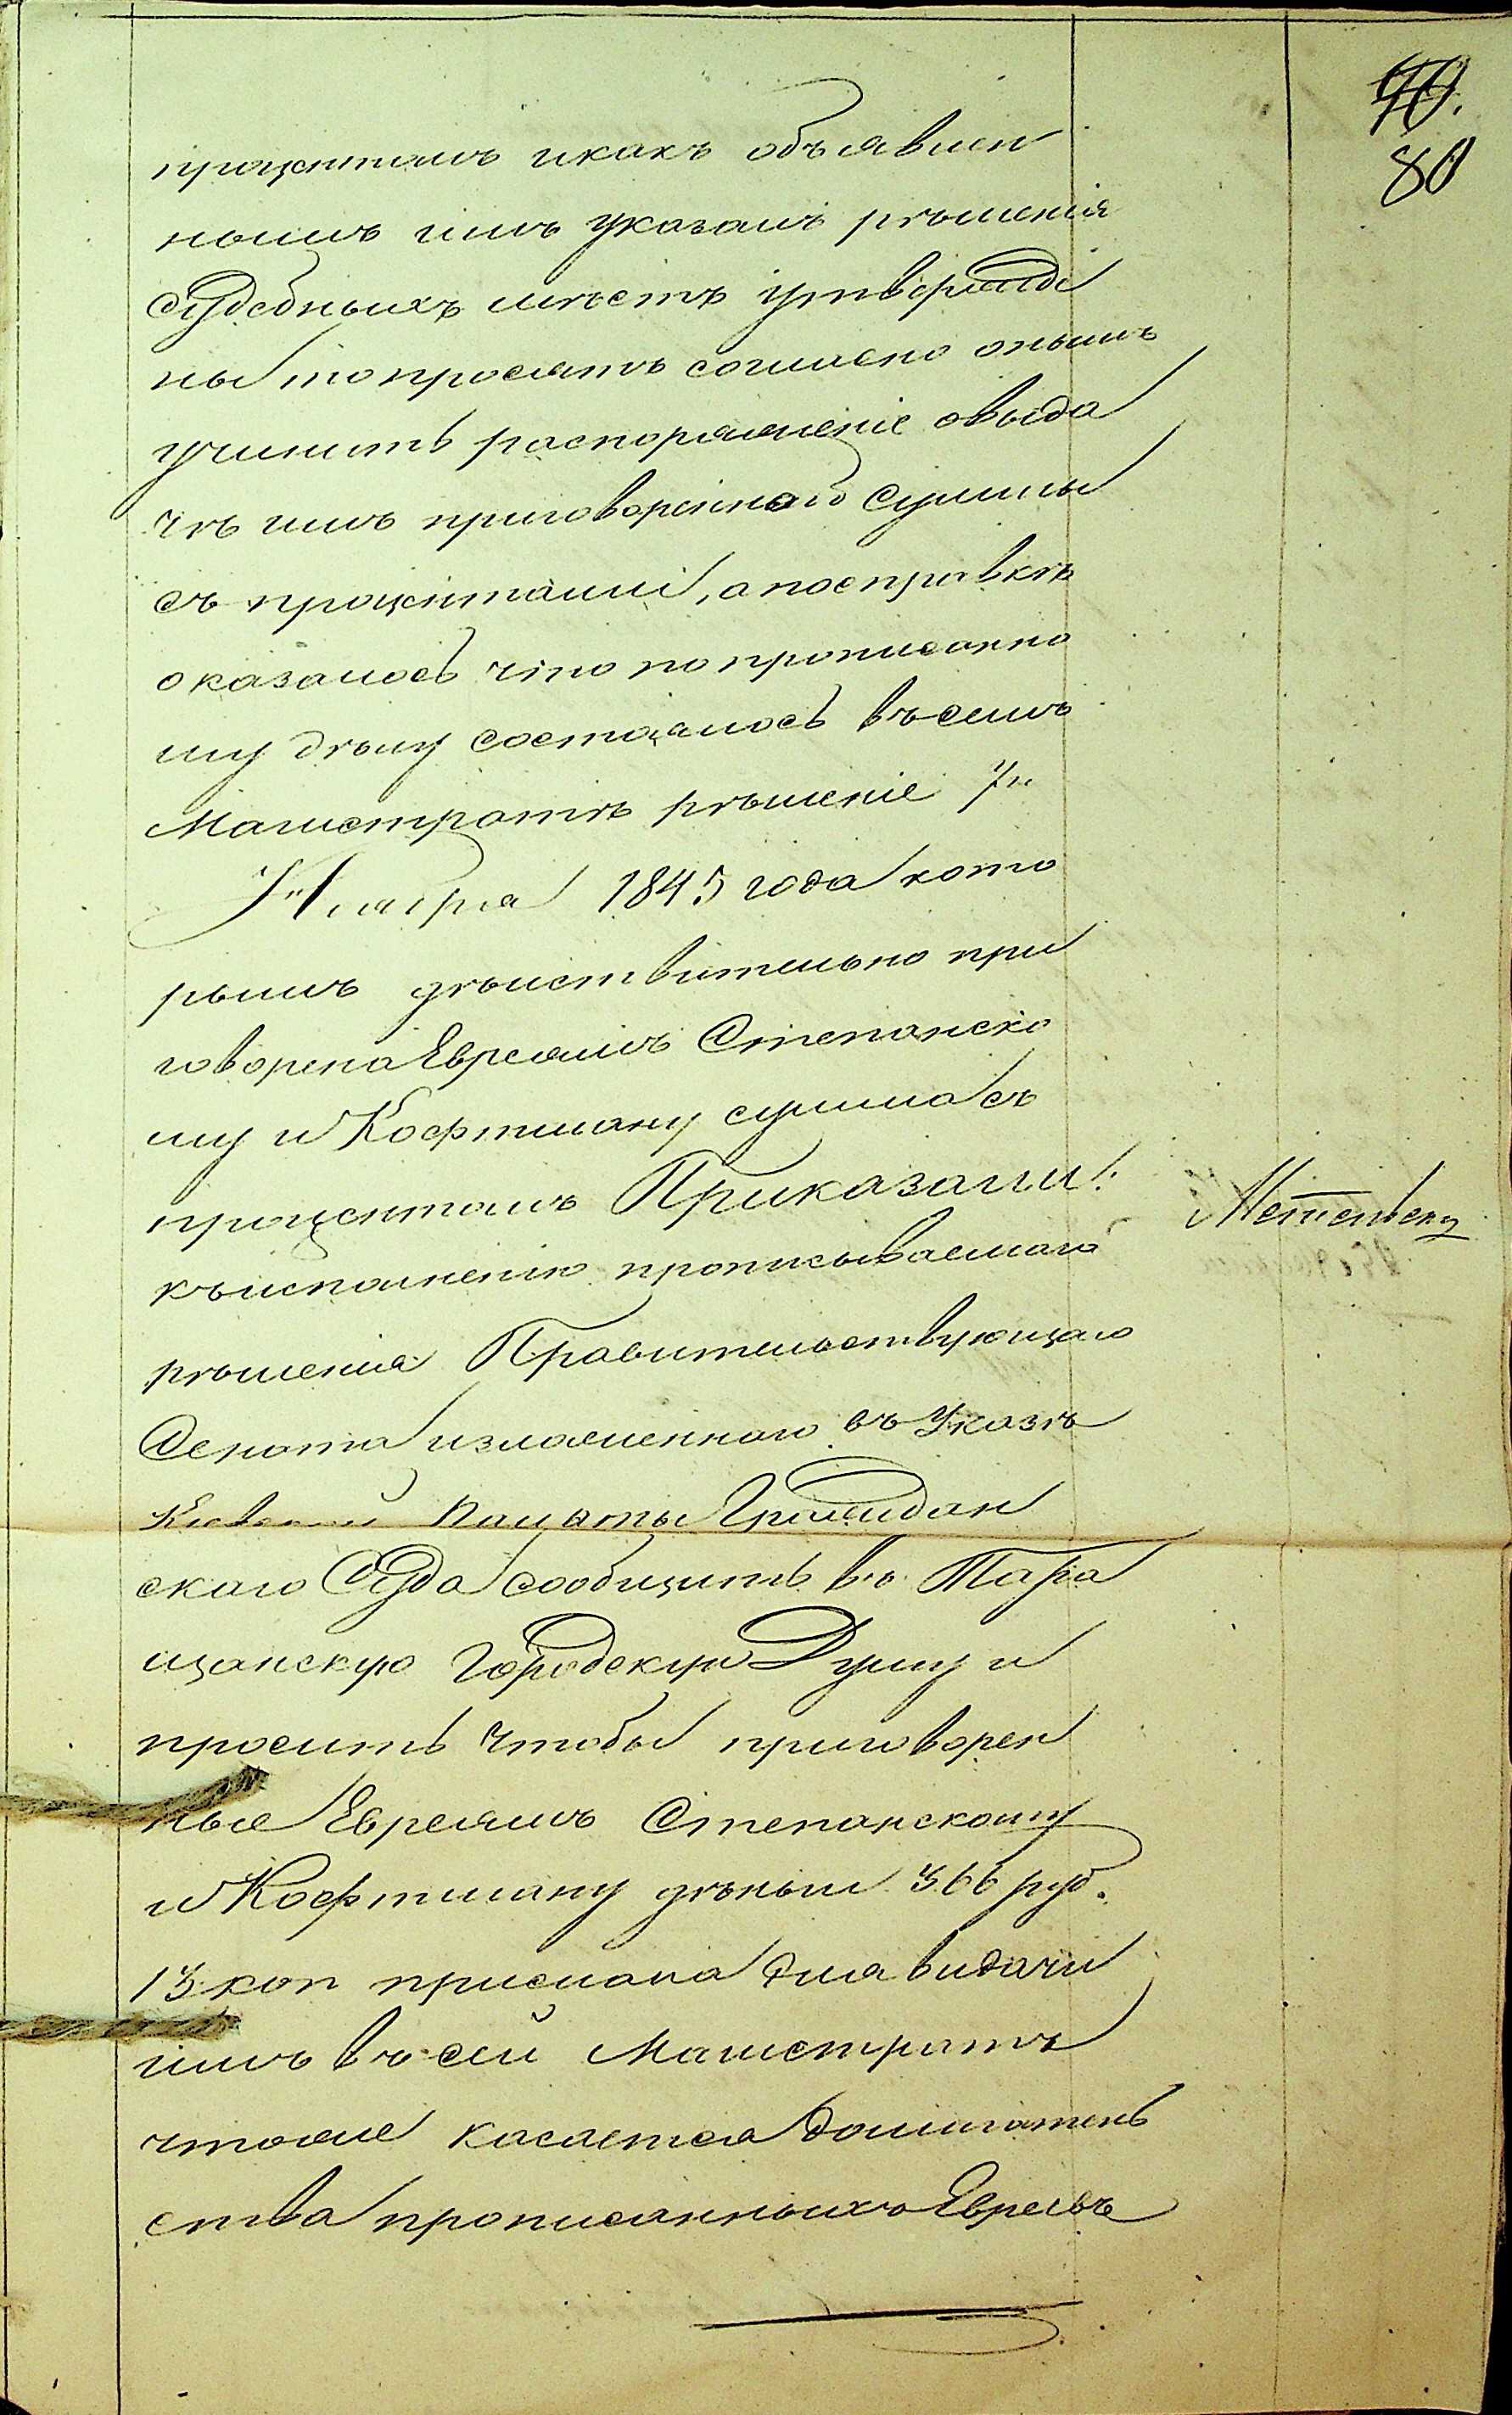 90.
80
процентамъ икакъ объявлен
нымъ имъ указамъ рѣшенія
судебныхъ мѣстъ утвержде
ны то просятъ согласно онымъ
учинить распоряженіе овыда
чѣ имъ приговоренного суммы
съ процентами, а посправкѣ
оказалось что по прописанно
му дѣлу состоялось въ семъ
Магистратѣ рѣшеніе 7го
Ноября 1845 года кото
рымъ дѣйствительно при
говорена Евреямъ Степанско
му и Кофтману сумма съ
процентамъ Приказали:
къисполненію прописываемаго
рѣшенія Правительствующаго
Сената изложенного въ Указѣ
Кіевской Палаты Граждан
скаго Суда сообщить въ Тара
щанскую Городскую Думу и
просить чтобы приговорен
ные Евреямъ Степанскому
и Кофтману деньги 366 руб.
13 коп прислала для видачи
имъ въ сей Магистратъ
чтоже касается домогатель
ства прописанныхъ Евреевъ